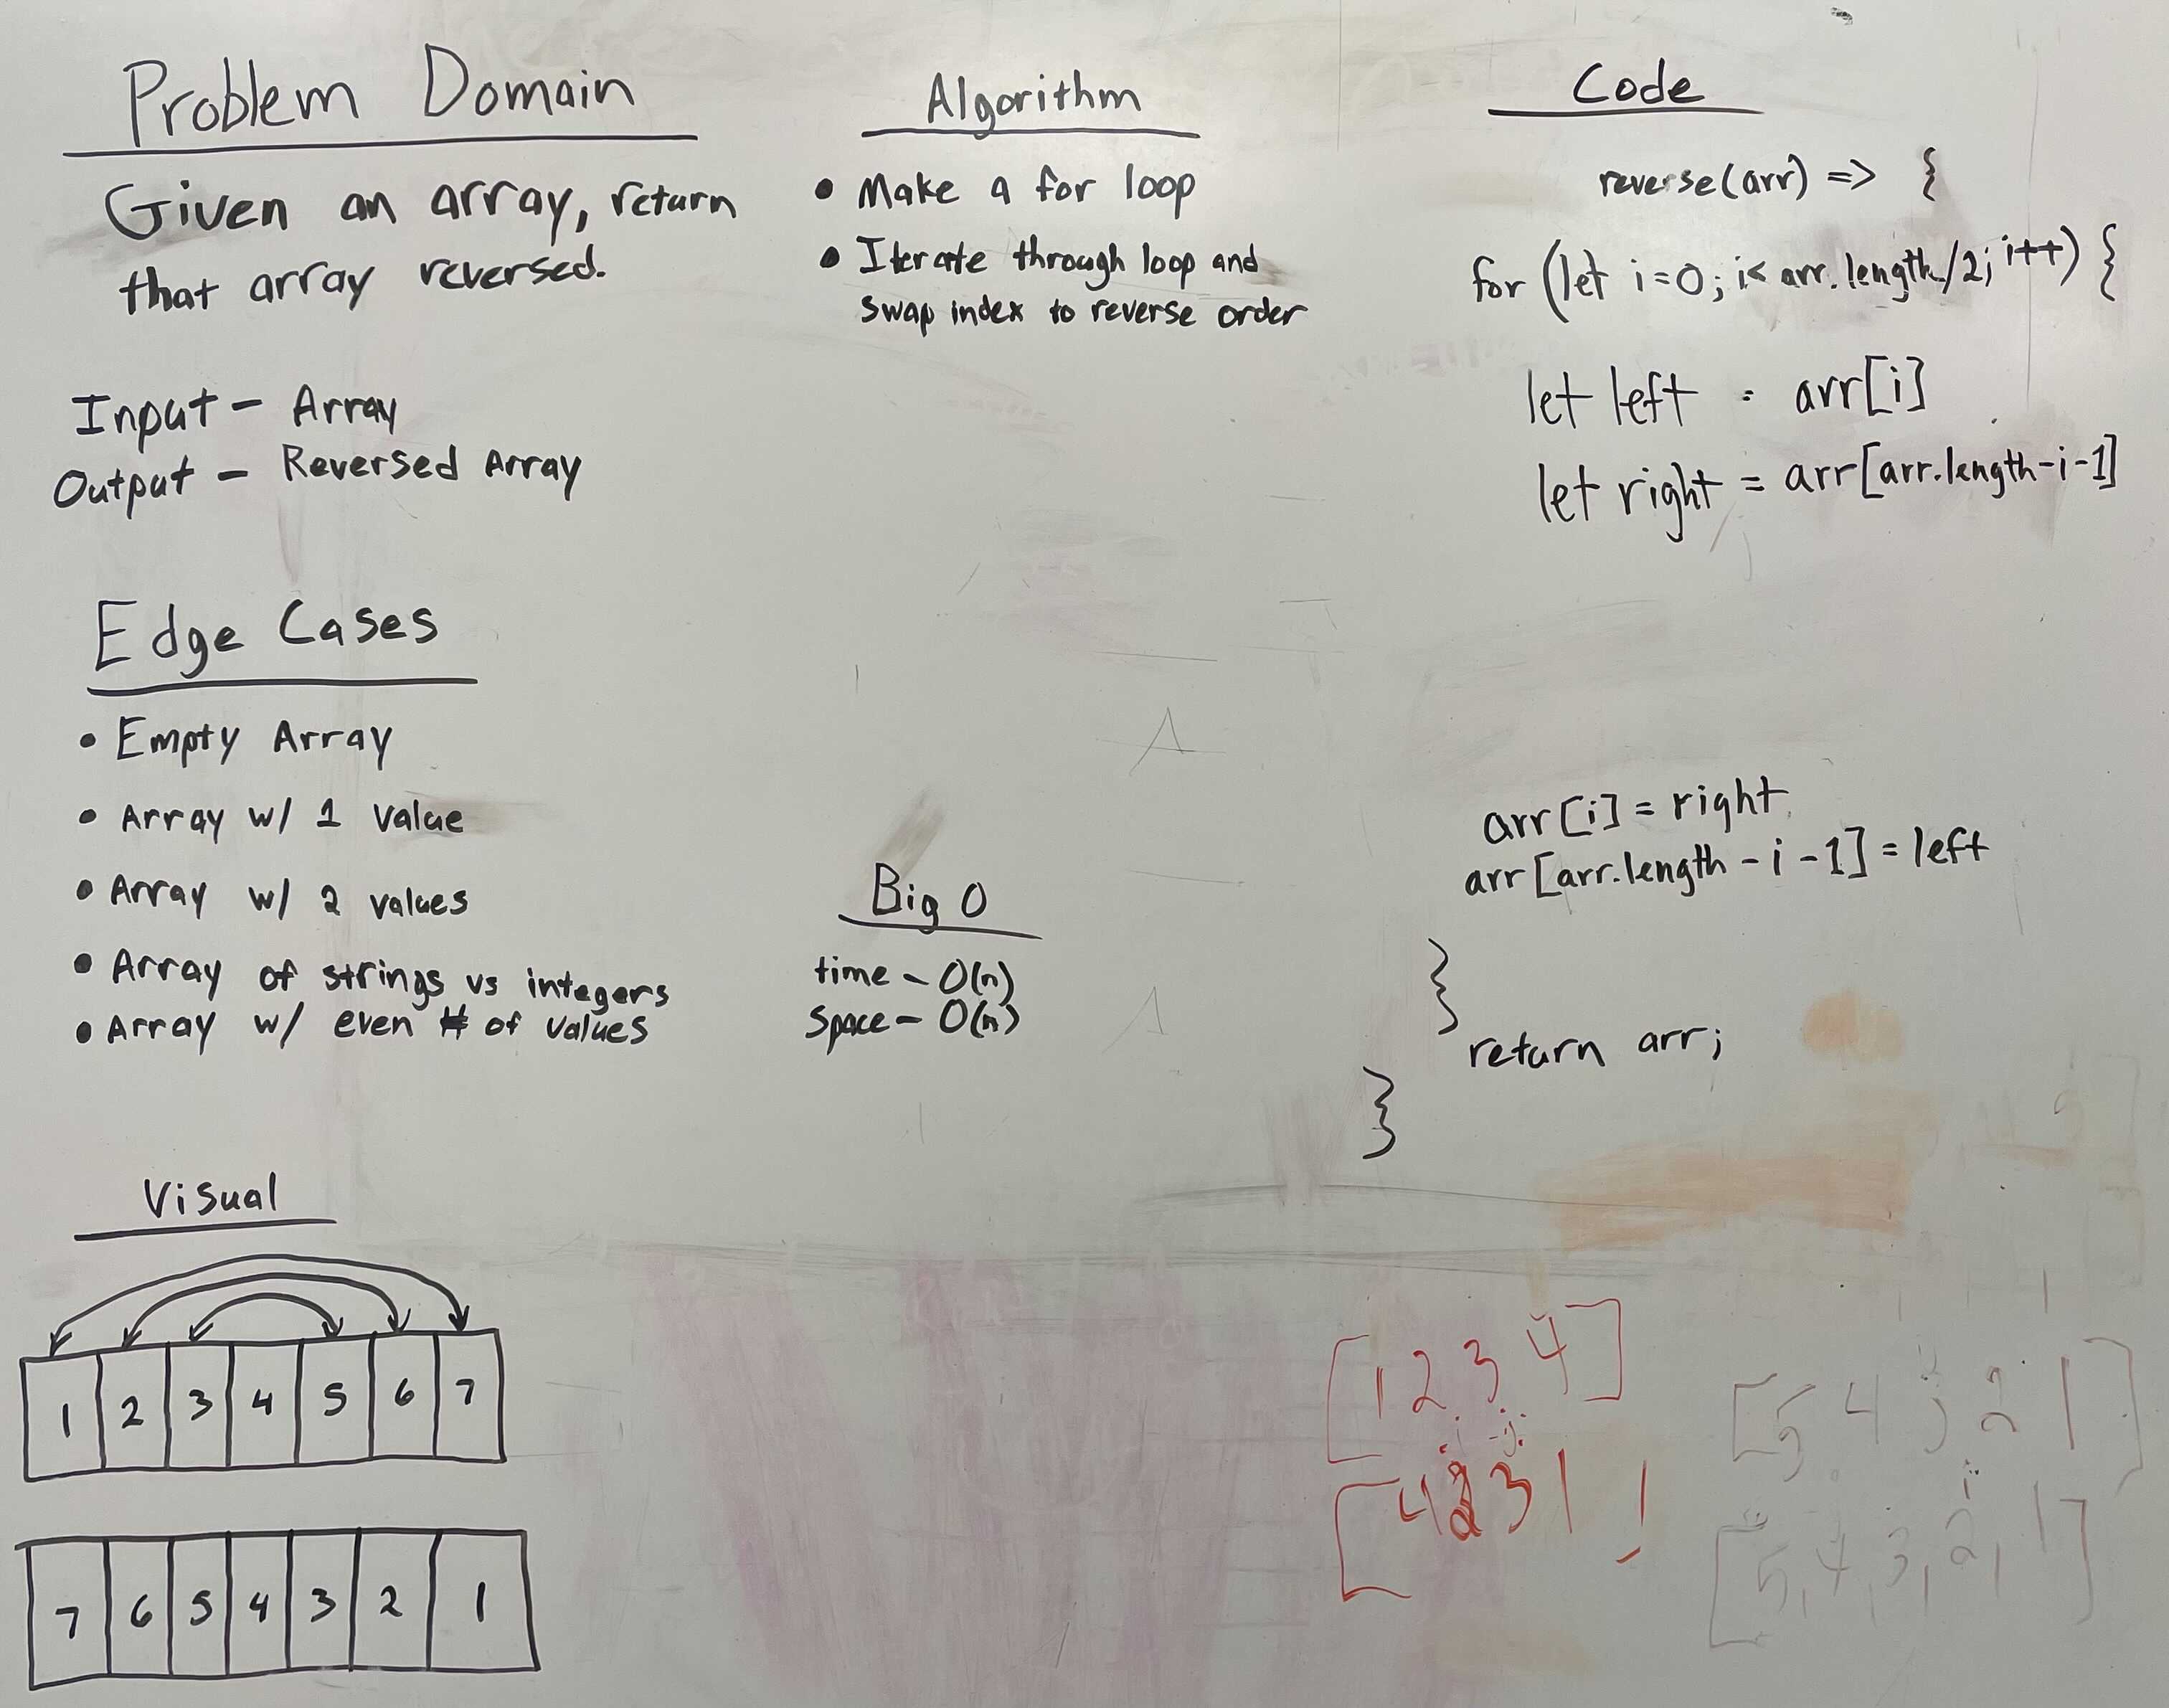 Problem Domain
Given an array, return
that array reversed.
Input - Array
Output - Reversed Array
Edge Cases
• Empty Array
• Array w/ 1 value
• Array w/ 2 values
• Array of strings vs integers
• Array w/ even # of values
Visual
1 2 3 4 5 6 7
7 6 5 4 3 2 1
Algorithm
• Make a for loop
• Iterate through loop and
swap index to reverse order
Big O
time - O(n)
space - O(n)
Code
reverse(arr) => {
for (let i=0; i< arr.length/2; i++) {
let left = arr[i]
let right = arr[arr.length-i-1]
arr[i] = right
arr[arr.length - i - 1] = left
}
return arr;
}
[1 2 3 4]
i j
[4 3 1
[5 4 2 1]
i
[5, 4, 3, 2, 1]